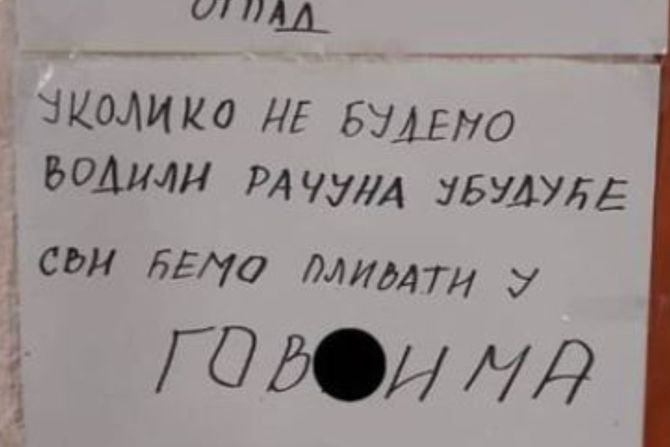 ОТПАД
УКОЛИКО НЕ БУДЕМО
ВОДИЛИ РАЧУНА УБУДУЋЕ
СВИ ЋЕМО ПЛИВАТИ У
ГОВ●ИМА